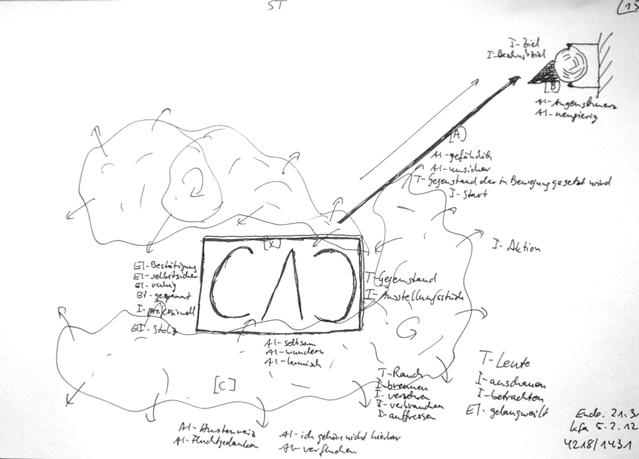 ST
I-Ziel
[B]
AI-neugierig
[A]
AI-gefährlich
AI-unsicher
T-Gegenstand der in Bewegung gesetzt wird
I-Start
I-Aktion
[X]
EI-Bestätigung
EI-selbstsicher
EI-ruhig
EI-gespannt
I-professionell
EI-Stolz
T-Gegenstand
I-Ausstellungsstück
AI-seltsam
AI-wundern
AI-komisch
G
[C]
T-Rauch
I-brennen
I-verbrauchen
I-auffressen
T-Leute
I-anschauen
I-betrachten
EI-gelangweilt
AI-Hustenreiz
AI-Fluchtgedanken
AI-ich gehöre nicht hierher
AI-verfluchen
Ende. 21.3
kfa 5.2.12
4218/1431